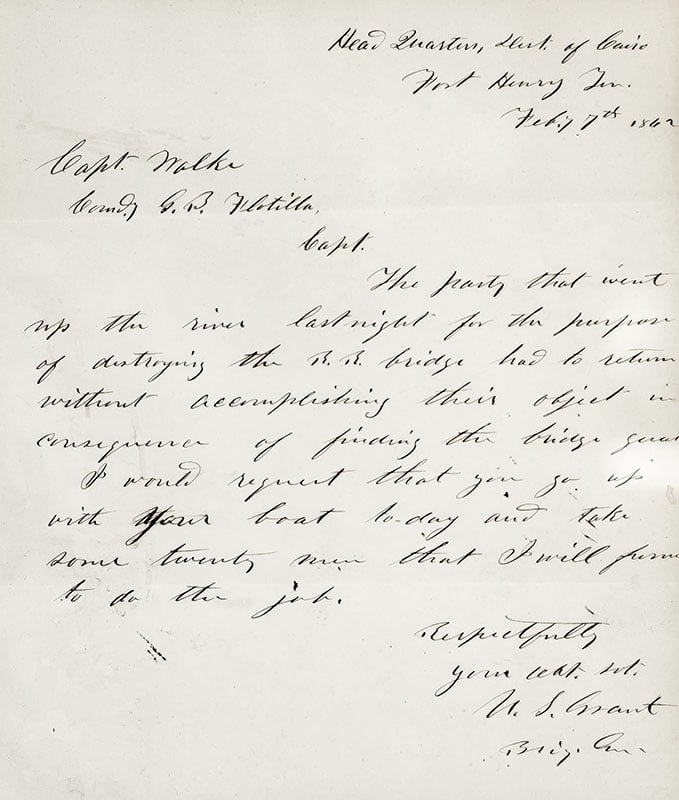 Head Quarters, Dist. of Cairo
Fort Henry Ten.
Feb.y 7th 1862
Capt. Walke
Comd.g G. B. Flotilla,
Capt.
The party that went
up the river last night for the purpose
of destroying the R. R. bridge had to return
without accomplishing their object in
consequence of finding the bridge guar
I would request that you go up
with your boat to-day and take
some twenty men that I will furn
to do the job.
Respectfully
your obt. svt.
U. S. Grant
Brig. Gen.